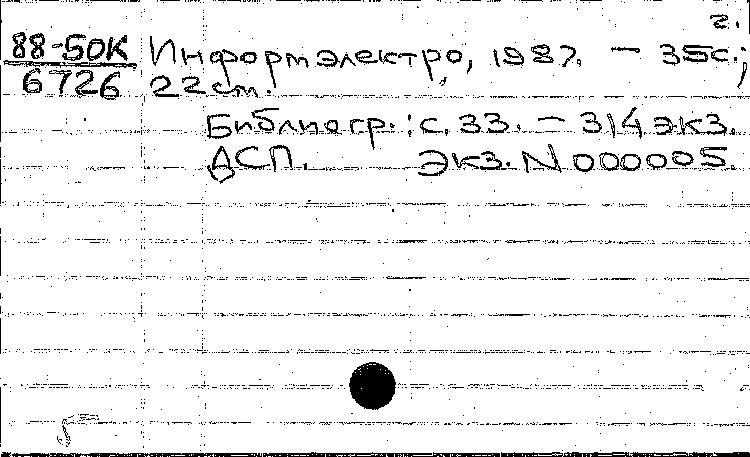 2.
88-50К Информэлектро, 1987. - 35с.;
6726 22 см.
Библиогр.: с. 33. - 314 экз.
ДСП. Экз. N 000005.